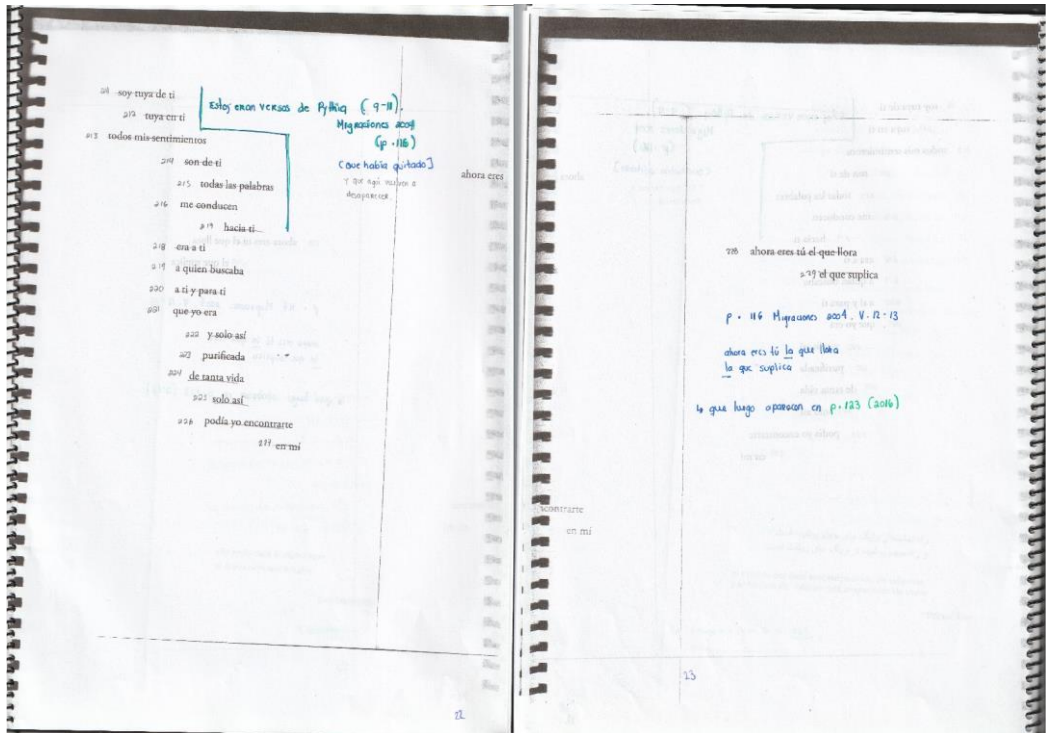 211 soy tuya de ti
212 tuya en ti
213 todos mis sentimientos
214 son de ti
215 todas las palabras
216 me conducen
217 hacia ti
218 era a ti
219 a quien buscaba
220 a ti y para ti
221 que yo era
222 y solo así
223 purificada
224 de tanta vida
225 solo así
226 podía yo encontrarte
227 en mí
Estos eran versos de Pythia (9-11).
Migraciones 2004
(p. 116)
(que había quitado]
y que aquí vuelven a
desaparecer.
ahora eres
22
228 ahora eres tú el que llora
229 el que suplica
p. 116 Migraciones 2004. V. 12-13
ahora eres tú la que llora
la que suplica
que luego aparecen en p. 123 (2016)
ncontrarte
en mí
23